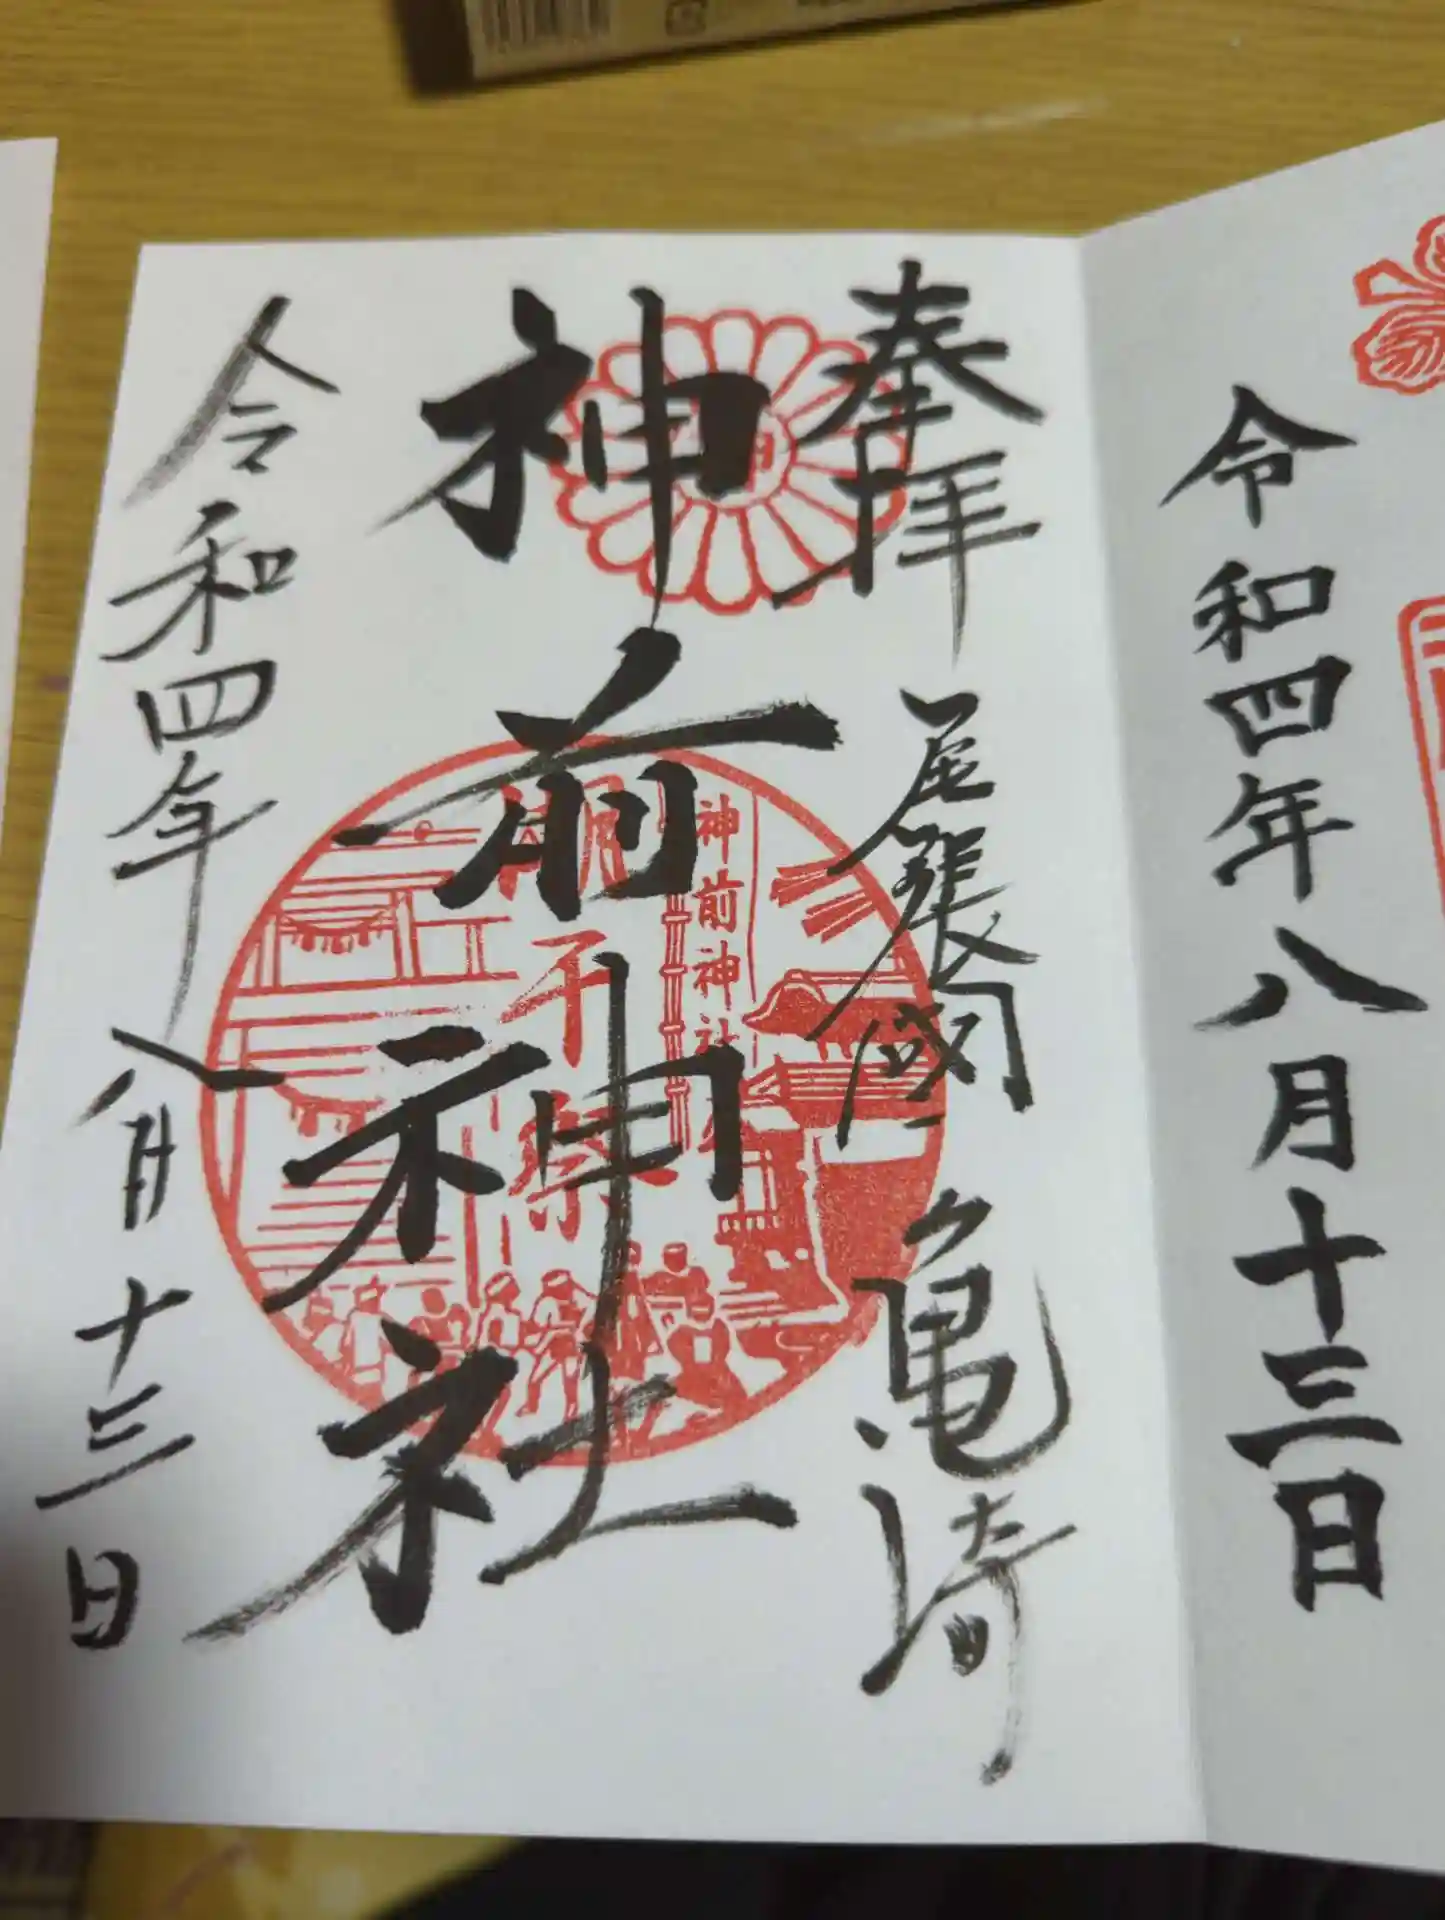 令和四年八月十三日
奉拝
尾張國亀崎
神前神社
神前神社
干祭
令和四年八月十三日